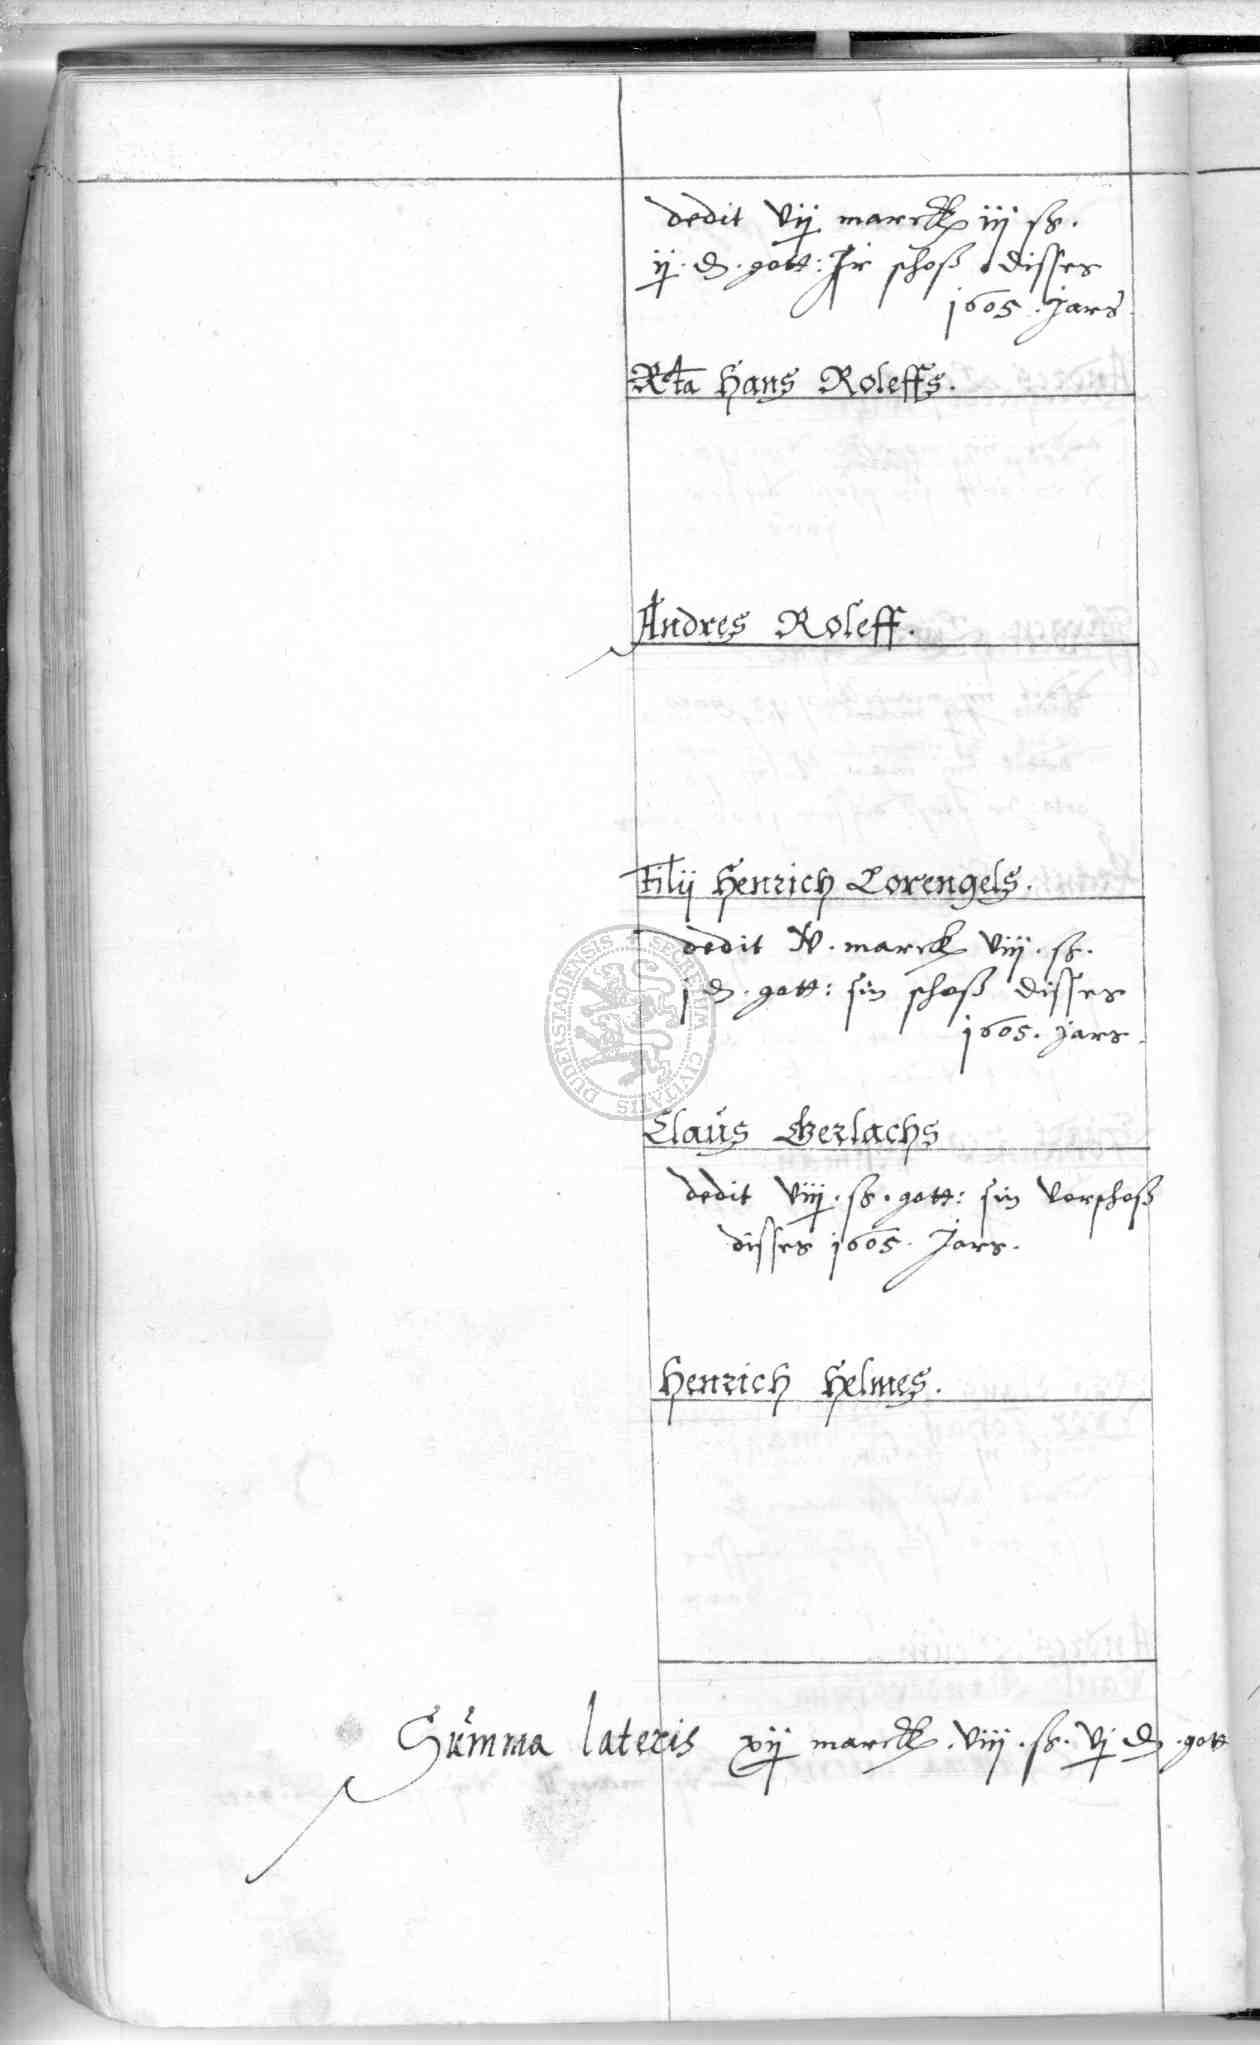 dedit vij marck iij ss.
ij d. gott: Jr schoß disses
1605. Jars.
Rta Hans Roleffs.
Andres Roleff.
Filij Henrich Corengels.
dedit iv. marck viij. ss.
j d. gott: sin schoß disses
1605. Jars.
Claus Gerlachs
dedit viij. ss. gott: sin vorschoß
disses 1605. Jars.
Henrich Helmes.
Summa lateris xij marck. viij. ss. vj d. gott
SECRETUM CIVITATIS DUDERSTADIENSIS